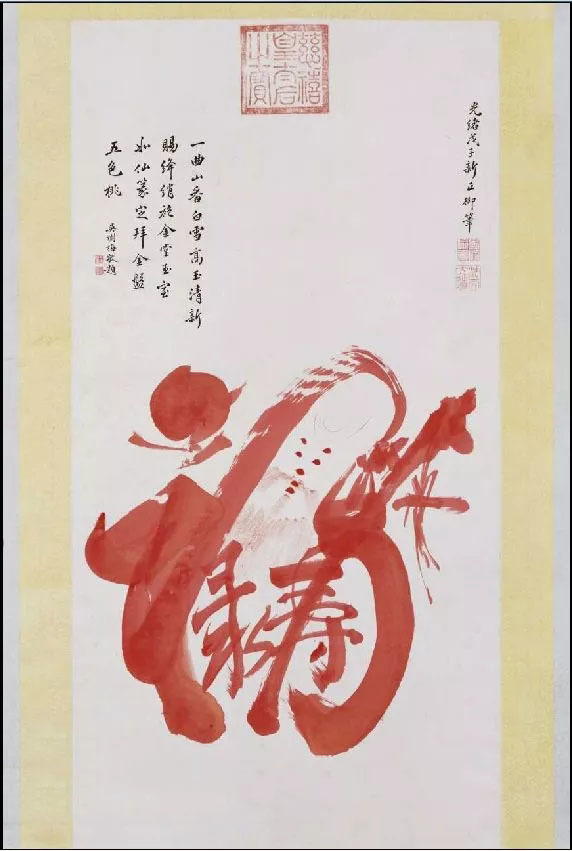 慈禧
皇太后
之寶
光緒戊子新正御筆
一曲山香白雪高玉清新
賜絳綃袍金堂玉室
如仙篆定拜金盤
五色桃
吳樹梅敬題
寿